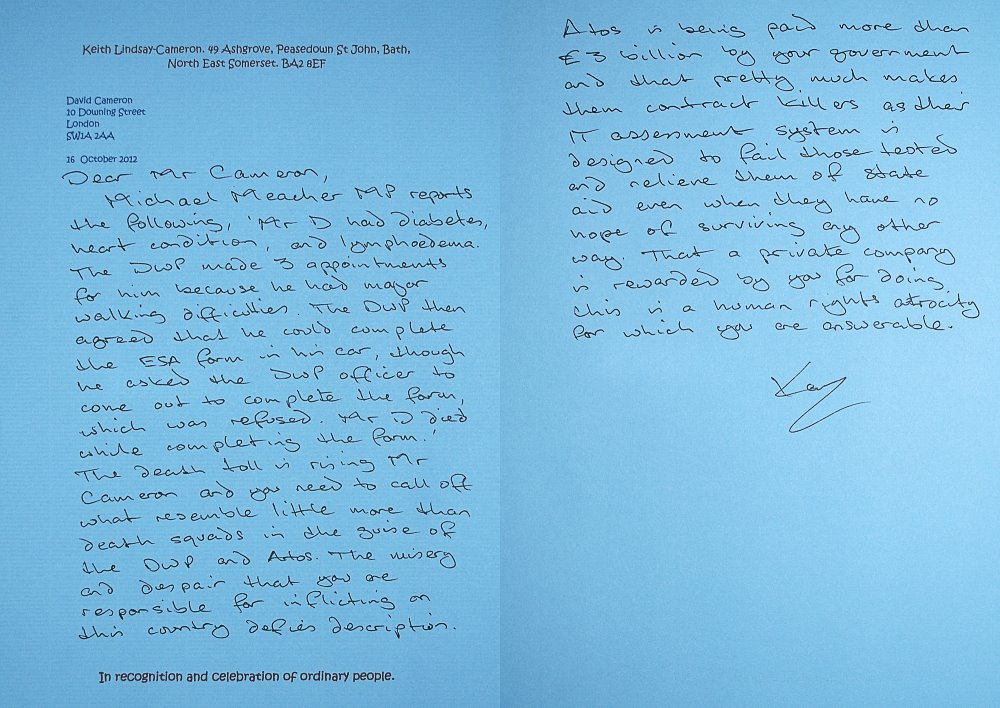 Keith Lindsay-Cameron. 49 Ashgrove, Peasedown St John, Bath,
North East Somerset. BA2 8EF
David Cameron
10 Downing Street
London
SW1A 2AA
16 October 2012
Dear Mr Cameron,
Michael Meacher MP reports
the following, 'Mr D had diabetes,
heart condition, and lymphoedema.
The DWP made 3 appointments
for him because he had major
walking difficulties. The DWP then
agreed that he could complete
the ESA form in his car, though
he asked the DWP officer to
come out to complete the form,
which was refused. Mr D died
while completing the form.'
The death toll is rising Mr
Cameron and you need to call off
what resemble little more than
death squads in the guise of
the DWP and Atos. The misery
and despair that you are
responsible for inflicting on
this country defies description.
In recognition and celebration of ordinary people.
Atos is being paid more than
£3 billion by your government
and that pretty much makes
them contract killers as their
IT assessment system is
designed to fail those tested
and relieve them of state
aid even when they have no
hope of surviving any other
way. That a private company
is rewarded by you for doing
this is a human rights atrocity
for which you are answerable.